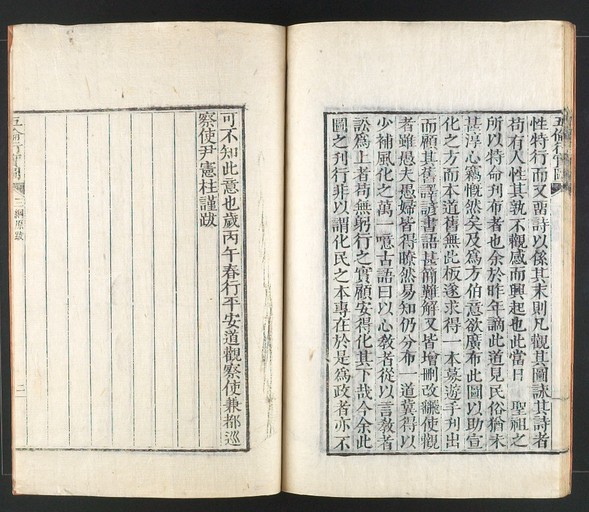 性特行而又畱詩以係其末則凡觀其圖詠其詩者
苟有人性其孰不觀感而興起也此當日 聖祖之
所以特命刋布者也余於昨年謫此道見民俗猶未
甚淳心竊慨然矣及爲方伯意欲廣布此圖以助宣
化之方而本道舊無此板遂求得一本募遊手刋出
而顧其舊譯諺書語甚簡難解又皆增刪改繡使觀
者雖愚夫愚婦皆得瞭然易知仍分布一道冀得以
少補風化之萬一噫古語曰以心敎者從以言敎者
訟爲上者苟無躬行之實顧安得化其下哉今余此
圖之刋行非以謂化民之本專在於是爲政者亦不
五倫行實圖
可不知此意也歲丙午春行平安道觀察使兼都巡
察使尹憲柱謹跋
五倫行實圖
三綱原跋
二